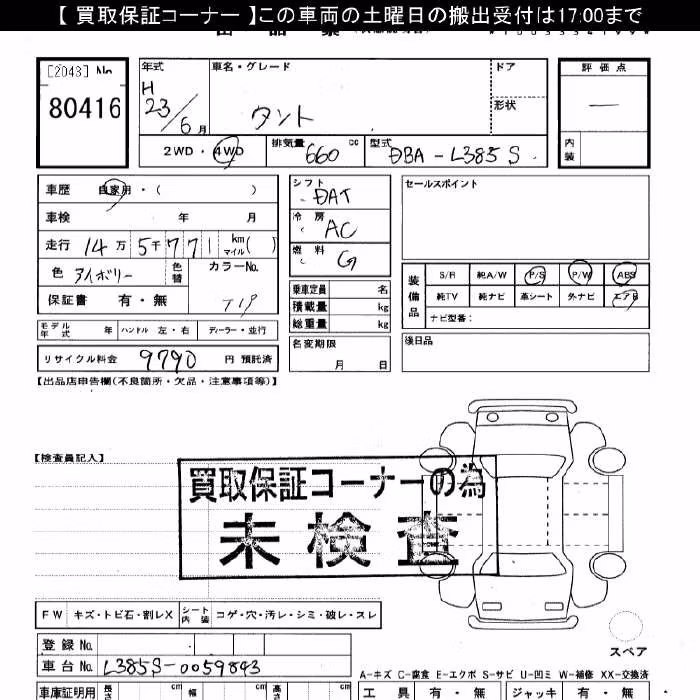 【 買取保証コーナー 】この車両の土曜日の搬出受付は17:00まで
[2043] No
80416
年式
車名・グレード
ドア
評価点
H
23/6月
タント
形状
―
2WD・4WD
排気量 660 cc
型式 DBA - L385S
内装
車歴 自家用・( )
シフト DAT
セールスポイント
車検 年 月
冷房 AC
走行 14万5千771 km マイル( )
燃料 G
色 アイボリー
色替
カラーNo. T19
装備品
S/R 純A/W P/S P/W ABS
純TV 純ナビ 革シート 外ナビ エアB
ナビ型番:
保証書 有・無
乗車定員 名
積載量 kg
総重量 kg
モデル年式 年 ハンドル 左・右 ディーラー・並行
リサイクル料金 9790 円 預託済
名変期限 月 日
後日品
【出品店申告欄(不良箇所・欠品・注意事項等)】
【検査員記入】
買取保証コーナーの為
未検査
FW キズ・トビ石・割レX シート内装 コゲ・穴・汚レ・シミ・破レ・スレ
スペア
登録No.
車台No. L385S-0059843
A-キズ C-腐食 E-エクボ S-サビ U-凹ミ W-補修 XX-交換済
車庫証明用 長さ cm 幅 cm 高さ cm
工具 有・無 ジャッキ 有・無